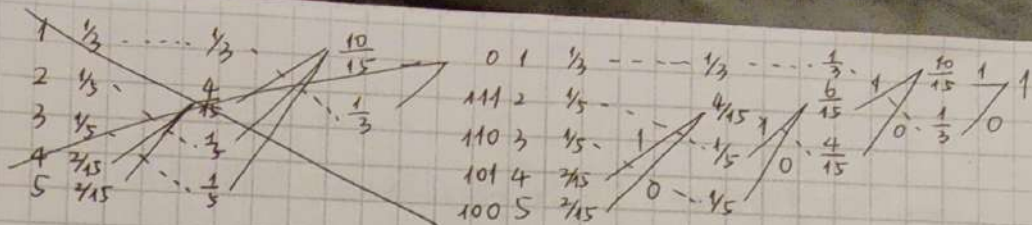 1 1/3 1/3 10/15
2 1/5 4/15 1/3
3 1/5 1/5
4 2/15 1/5
5 2/15
0 1 1/3 1/3 1/3 1 10/15 1 1
111 2 1/5 4/15 1 6/15 0 1/3 0
110 3 1/5 1 1/5 0 4/15
101 4 2/15 0 1/5
100 5 2/15